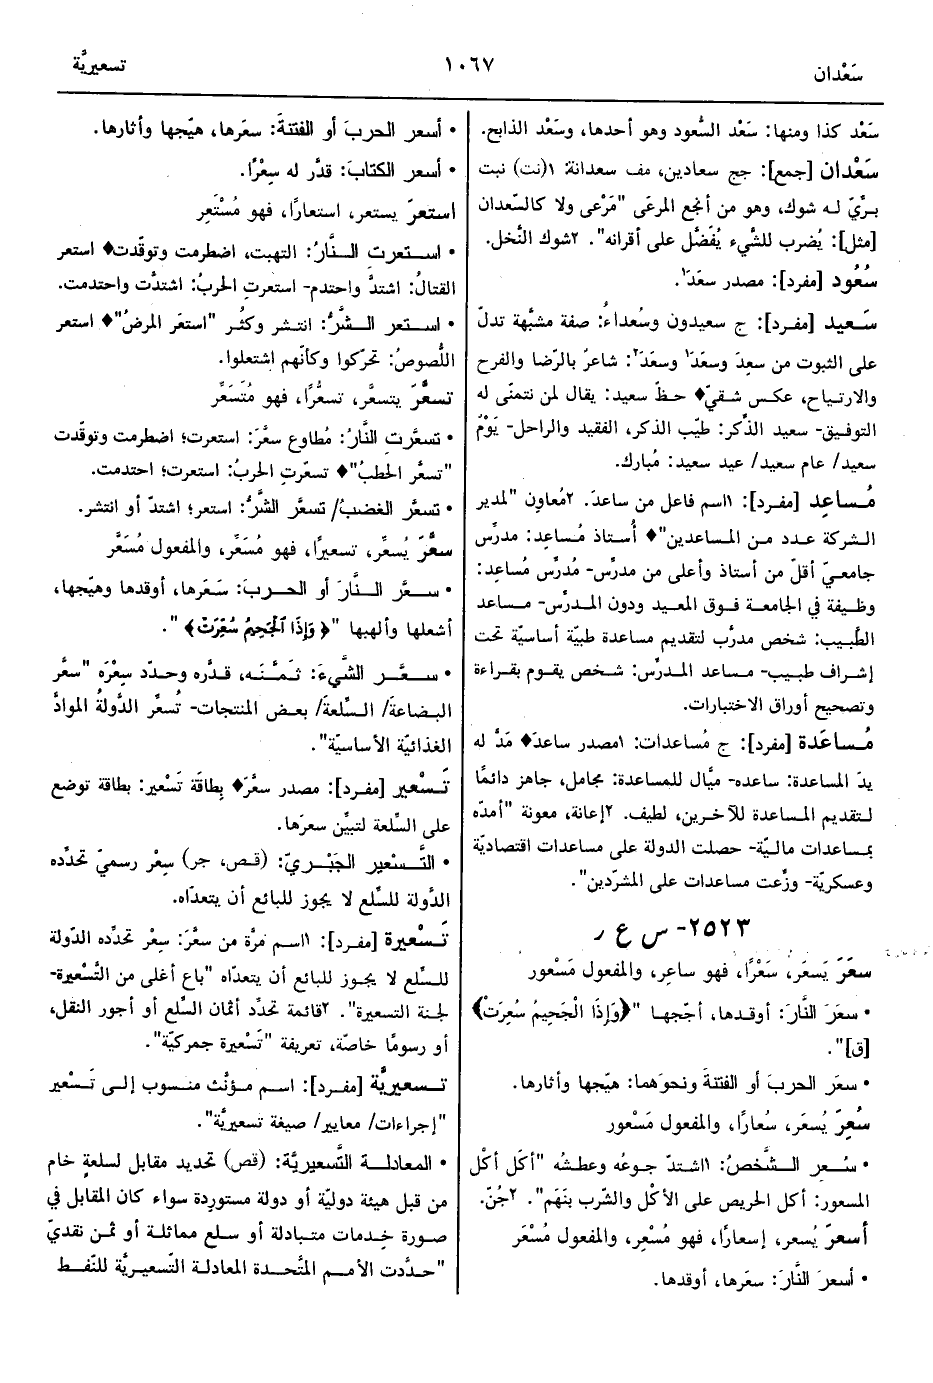 سَعْدان
١٠٦٧
تسعيريَّة
سَعْد كذا ومنها: سَعْد السُّعود وهو أحدها، وسَعْد الذابح.
سَعْدان [جمع]: جج سعادين، مف سعدانة: ١(نت) نبت
برّيّ له شوك، وهو من أنجع المرعَى "مَرْعى ولا كالسَّعدان
[مثل]: يُضرب للشَّيء يُفَضَّل على أقرانه". ٢شوك النَّخل.
سُعُود [مفرد]: مصدر سعَدَ١.
سَعيد [مفرد]: ج سعيدون وسُعداءُ: صفة مشبَّهة تدلّ
على الثبوت من سعِدَ وسعَدَ١ وسعَدَ٢: شاعرٌ بالرِّضا والفرح
والارتياح، عكس شقيّ♦ حظّ سعيد: يقال لمن نتمنّى له
التوفيق- سعيد الذِّكر: طيّب الذكر، الفقيد والراحل- يَوْمٌ
سعيد/ عام سعيد/ عيد سعيد: مُبارك.
مُساعِد [مفرد]: ١اسم فاعل من ساعدَ. ٢مُعاون "لمدير
الشركة عدد من المساعدين"♦ أُستاذ مُساعِد: مدرِّس
جامعيّ أقلّ من أستاذ وأعلى من مدرِّس- مُدرِّس مُساعِد:
وظيفة في الجامعة فوق المعيد ودون المدرِّس- مساعد
الطَّبيب: شخص مدرَّب لتقديم مساعدة طبيّة أساسيّة تحت
إشراف طبيب- مساعد المدرِّس: شخص يقوم بقراءة
وتصحيح أوراق الاختبارات.
مُساعَدة [مفرد]: ج مُساعدات: ١مصدر ساعدَ♦ مَدَّ له
يدَ المساعدة: ساعده- ميَّال للمساعدة: مجامل، جاهز دائمًا
لتقديم المساعدة للآخرين، لطيف. ٢إعانة، معونة "أمدّه
بمساعدات ماليّة- حصلت الدولة على مساعدات اقتصاديّة
وعسكريّة- وزَّعت مساعدات على المشرّدين".
٢٥٢٣- س ع ر
سعَرَ يَسعَر، سَعْرًا، فهو ساعِر، والمفعول مَسْعور
• سعَرَ النَّارَ: أوقدها، أججها "﴿وَإِذَا الْجَحِيمُ سُعِرَتْ﴾
[ق]".
• سعَر الحربَ أو الفتنةَ ونحوَهما: هيّجها وأثارها.
سُعِرَ يُسعَر، سُعارًا، والمفعول مَسْعور
• سُعر الشَّخصُ: ١اشتدّ جوعُه وعطشُه "أكَل أكْل
المسعور: أكل الحريص على الأكْل والشّرب بنَهَم". ٢جُنّ.
أسعرَ يُسعر، إسعارًا، فهو مُسْعِر، والمفعول مُسْعَر
• أسعرَ النَّارَ: سعَرها، أوقدها.
• أسعر الحربَ أو الفتنةَ: سعَرها، هيّجها وأثارها.
• أسعر الكتابَ: قدَّر له سِعْرًا.
استعرَ يستعر، استعارًا، فهو مُسْتَعِر
• استعرت النَّارُ: التهبت، اضطرمت وتوقّدت♦ استعر
القتالُ: اشتدّ واحتدم- استعرتِ الحربُ: اشتدَّت واحتدمت.
• استعر الشَّرُّ: انتشر وكثُر "استعَر المرضُ"♦ استعر
اللُّصوصُ: تحرّكوا وكأنّهم اشتعلوا.
تسعَّرَ يتسعَّر، تسعُّرًا، فهو مُتَسَعِّر
• تسعَّرت النَّارُ: مُطاوع سعَّرَ: استعرت؛ اضطرمت وتوقّدت
"تسعَّر الحطبُ"♦ تسعَّرتِ الحربُ: استعرت؛ احتدمت.
• تسعَّر الغضبُ/ تسعَّر الشَّرُّ: استعر؛ اشتدّ أو انتشر.
سعَّرَ يُسعِّر، تسعيرًا، فهو مُسَعِّر، والمفعول مُسَعَّر
• سعَّر النَّارَ أو الحربَ: سَعَرها، أوقدها وهيّجها،
أشعلها وألهبها "﴿وَإِذَا الْجَحِيمُ سُعِّرَتْ﴾ ".
• سعَّر الشَّيءَ: ثمَّنه، قدَّره وحدّد سِعْرَه "سعَّر
البضاعةَ/ السِّلعةَ/ بعض المنتجات- تُسعِّر الدَّولةُ الموادَّ
الغذائيّة الأساسيّة".
تَسْعير [مفرد]: مصدر سعَّرَ♦ بِطاقَة تَسْعير: بطاقة توضع
على السِّلعة لتبيِّن سعرَها.
• التَّسعير الجَبْريّ: (قص، جر) سِعْر رسميّ تحدِّده
الدَّولة للسِّلع لا يجوز للبائع أن يتعدّاه.
تَسْعيرة [مفرد]: ١اسم مرَّة من سعَّرَ: سِعْر تحدِّده الدَّولة
للسِّلع لا يجوز للبائع أن يتعدّاه "باع أغلى من التَّسْعيرة-
لجنة التسعيرة". ٢قائمة تحدِّد أثمان السِّلع أو أجور النقل،
أو رسومًا خاصّة، تعريفة "تَسْعيرة جمركيّة".
تسعيريَّة [مفرد]: اسم مؤنَّث منسوب إلى تَسْعير
"إجراءات/ معايير/ صيغة تسعيريَّة".
• المعادلة التَّسعيريَّة: (قص) تحديد مقابل لسلعةٍ خام
من قبل هيئة دوليّة أو دولة مستورِدة سواء كان المقابل في
صورة خِدمات متبادلة أو سلع مماثلة أو ثمن نقديّ
"حدَّدت الأمم المتَّحدة المعادلة التَّسعيريَّة للنَّفط